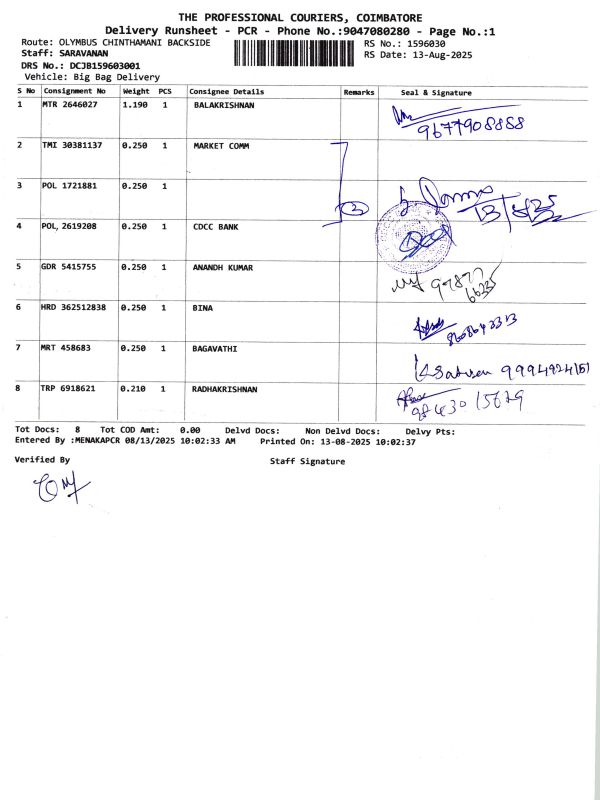 THE PROFESSIONAL COURIERS, COIMBATORE
Delivery Runsheet - PCR - Phone No.:9047080280 - Page No.:1
Route: OLYMBUS CHINTHAMANI BACKSIDE RS No.: 1596030
Staff: SARAVANAN RS Date: 13-Aug-2025
DRS No.: DCJB159603001
Vehicle: Big Bag Delivery
S No Consignment No Weight PCS Consignee Details Remarks Seal & Signature
1 MTR 2646027 1.190 1 BALAKRISHNAN
9677908888
2 TMI 30381137 0.250 1 MARKET COMM
3 POL 1721881 0.250 1
3 13/8/25
4 POL, 2619208 0.250 1 CDCC BANK
5 GDR 5415755 0.250 1 ANANDH KUMAR
6 HRD 362512838 0.250 1 BINA
7 MRT 458683 0.250 1 BAGAVATHI
8 TRP 6918621 0.210 1 RADHAKRISHNAN
98430 15629
Tot Docs: 8 Tot COD Amt: 0.00 Delvd Docs: Non Delvd Docs: Delvy Pts:
Entered By :MENAKAPCR 08/13/2025 10:02:33 AM Printed On: 13-08-2025 10:02:37
Verified By Staff Signature